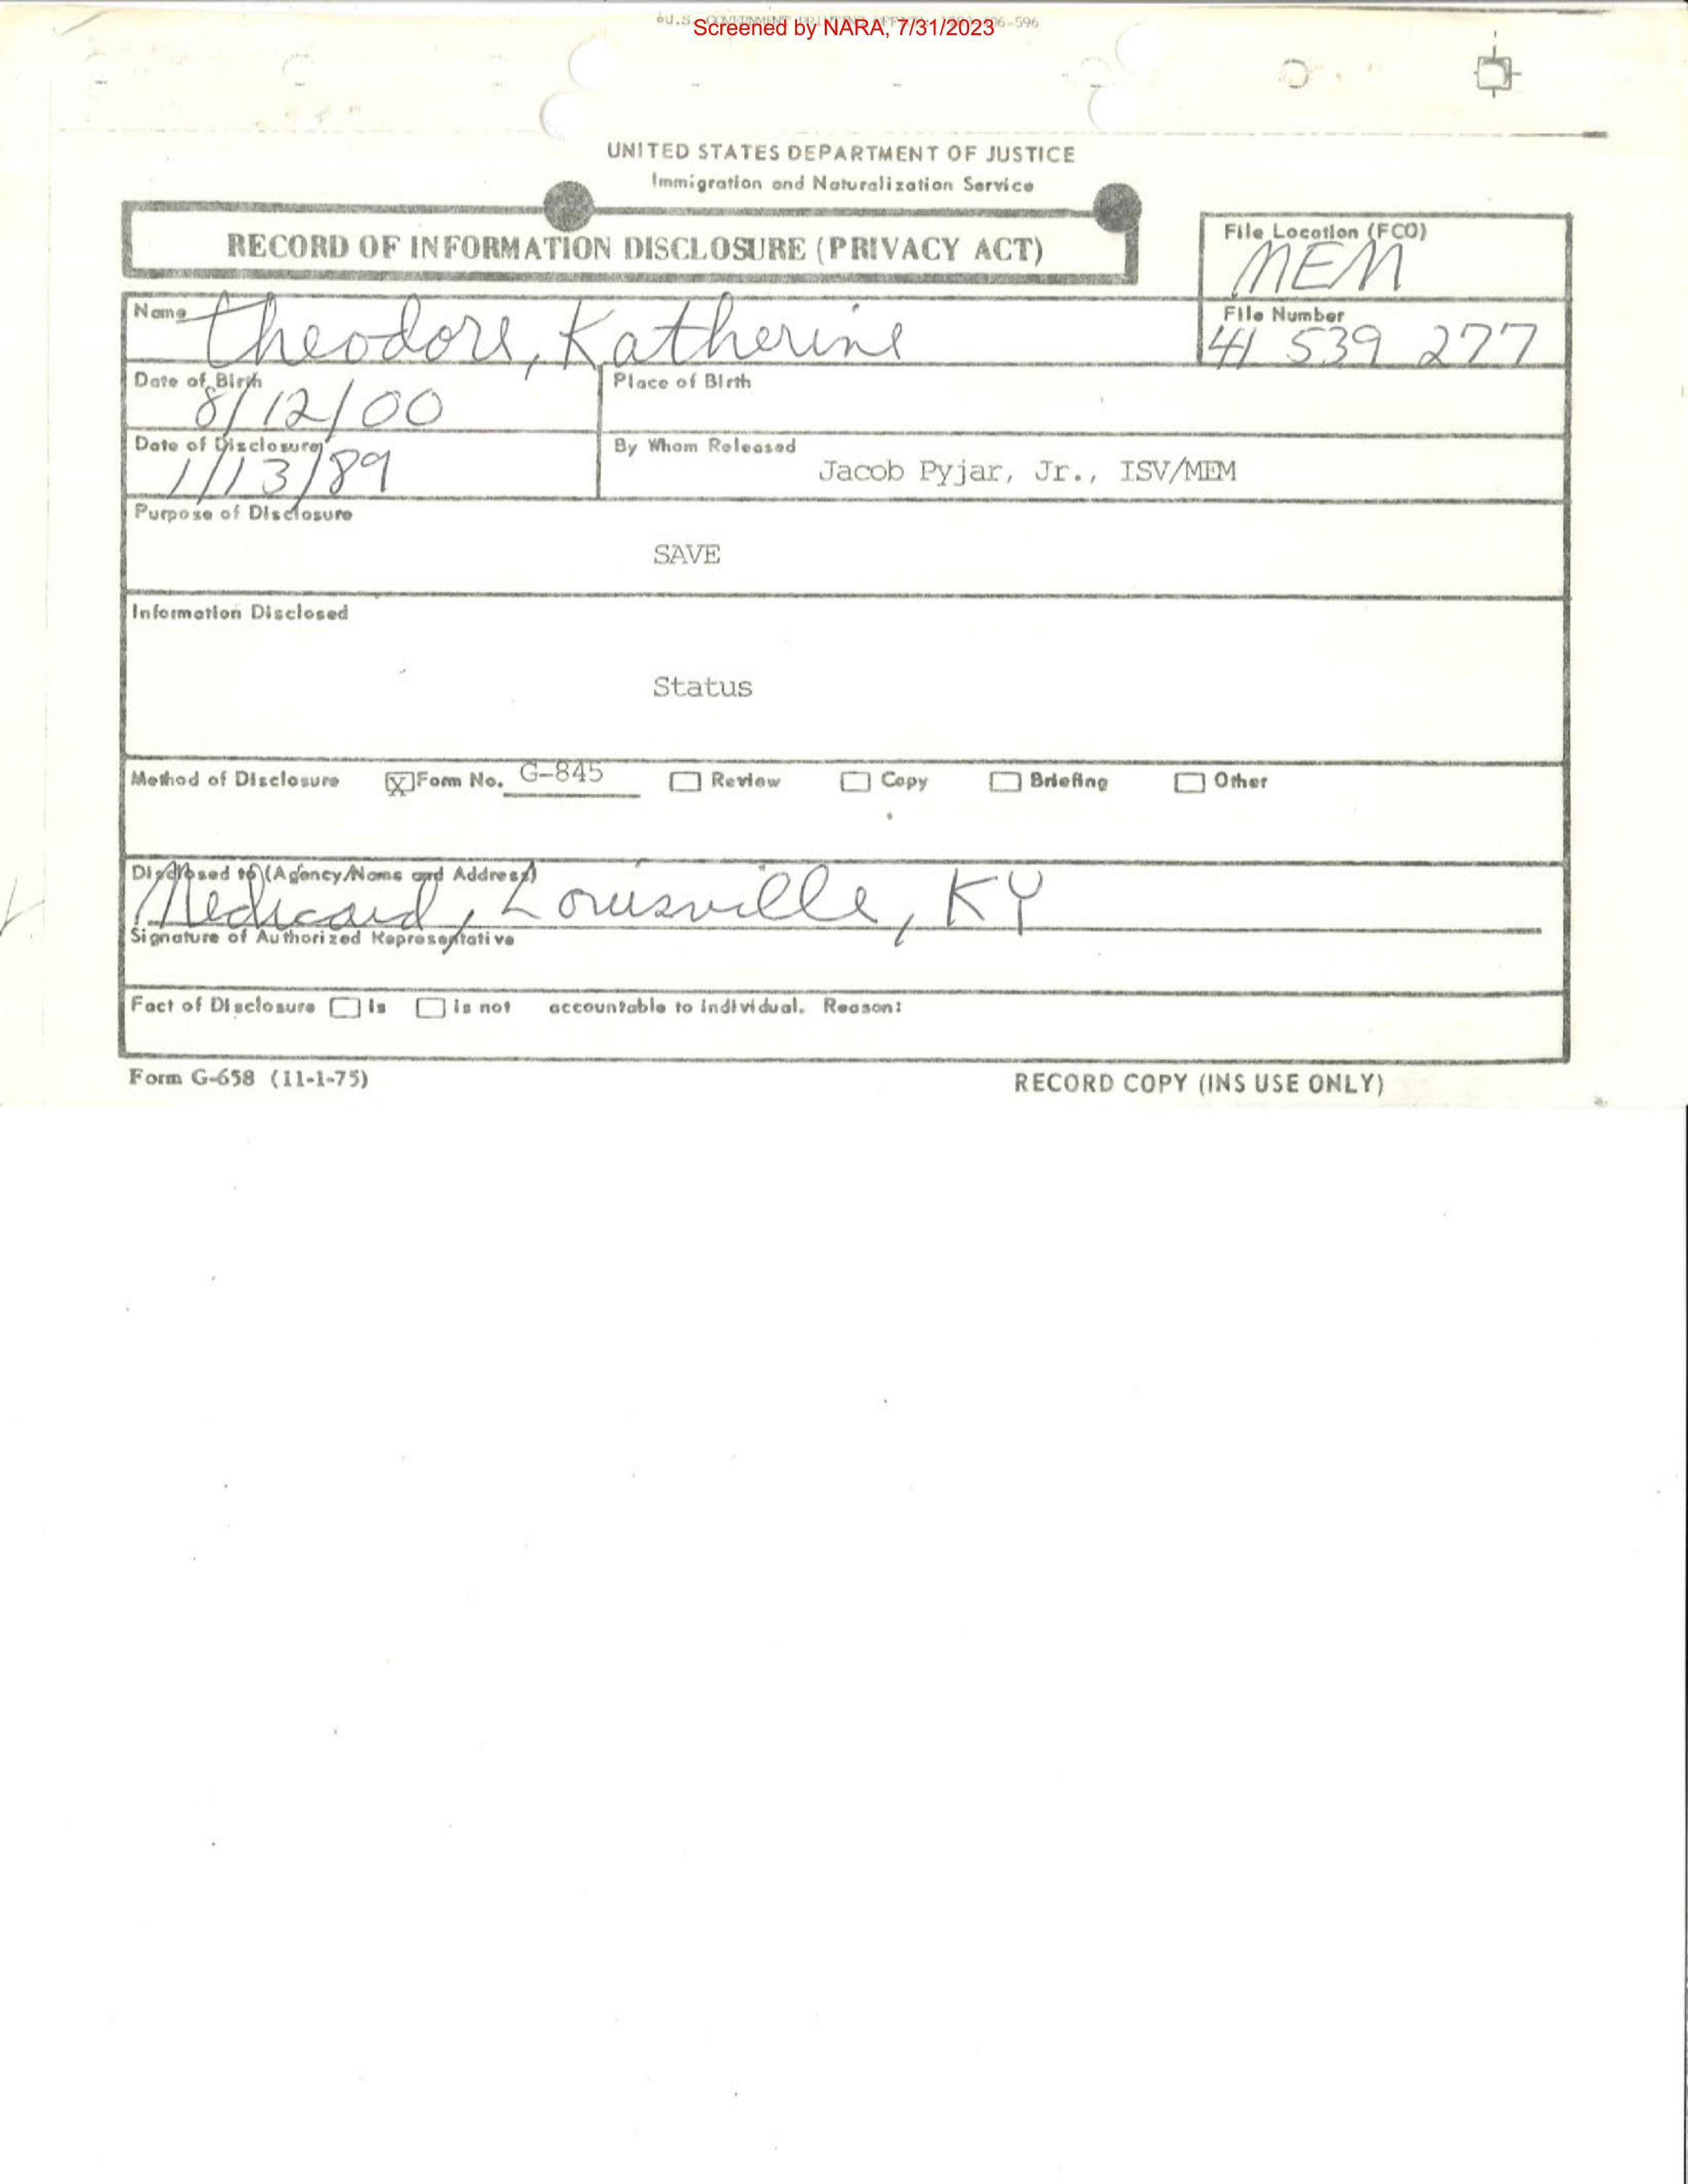 Screened by NARA, 7/31/2023
UNITED STATES DEPARTMENT OF JUSTICE
Immigration and Naturalization Service
RECORD OF INFORMATION DISCLOSURE (PRIVACY ACT)
File Location (FCO)
MEM
Name
Theodore, Katherine
File Number
41 539 277
Date of Birth
8/12/00
Place of Birth
Date of Disclosure
1/13/89
By Whom Released
Jacob Pyjar, Jr., ISV/MEM
Purpose of Disclosure
SAVE
Information Disclosed
Status
Method of Disclosure X Form No. G-845 Review Copy Briefing Other
Disclosed to (Agency/Name and Address)
Medicaid, Louisville, KY
Signature of Authorized Representative
Fact of Disclosure is is not accountable to individual. Reason:
Form G-658 (11-1-75) RECORD COPY (INS USE ONLY)